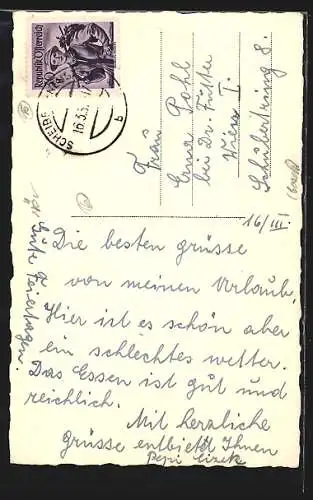 Republik Österreich
SCHEIBBS
16.3.5
b
Frau
Erna Pohl
bei Dr. Fürster
Wien I.
Schubertring 8.
16/III.
Die besten grüsse
von meinen Urlaub,
Hier ist es schön aber
ein schlechtes wetter.
Das Essen ist gut und
reichlich.
Mit herzliche
grüsse entbietet Ihnen
Pepi Cizek
Gute
Feiertagen.